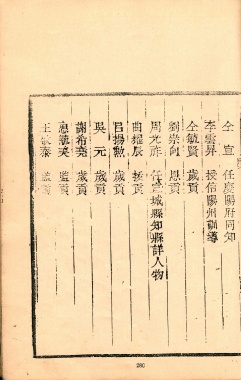 仝宣 任慶陽府同知
李雲昇 授信陽州訓導
仝毓賢 歲貢
劉崇向 恩貢
周允祚 任 城縣知縣詳人物
曲耀辰 拔貢
呂揚勳 歲貢
吳元 歲貢
謝希堯 歲貢
惠毓 監貢
王 泰 監貢
280